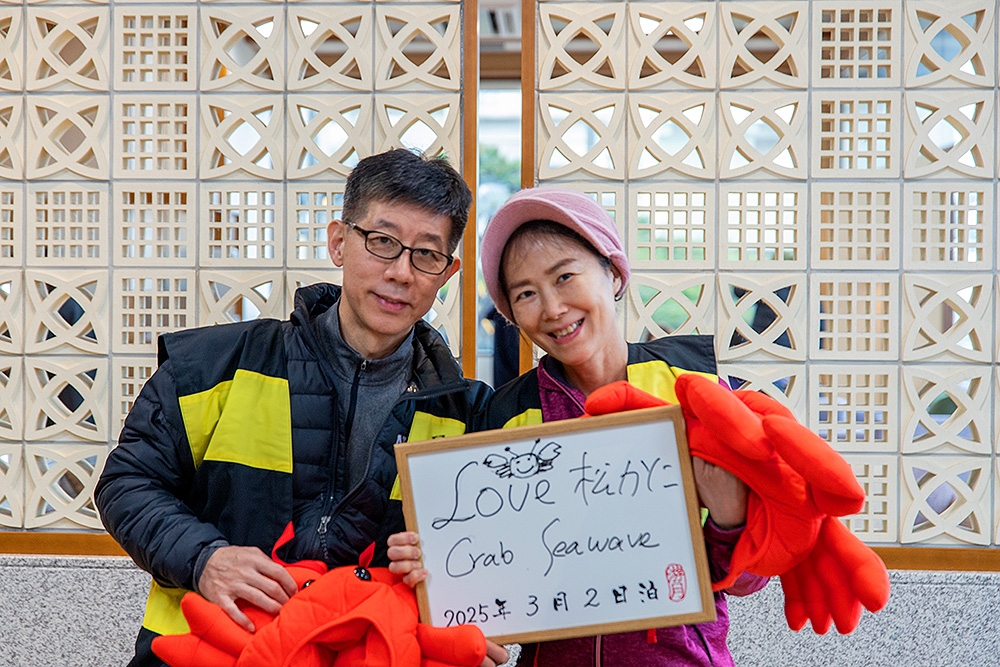 Love 松かに
Crab Seawave
2025年 3月2日泊